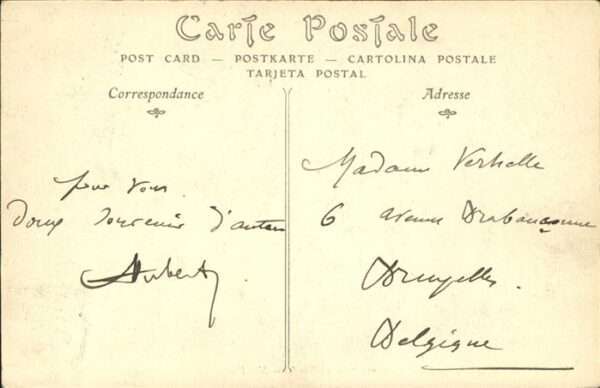 Carte Postale
POST CARD — POSTKARTE — CARTOLINA POSTALE
TARJETA POSTAL
Correspondance
Adresse
pour vous
doux souvenir d'antan
Hubert
Madame Verhelle
6 avenue Brabançonne
Bruxelles.
Belgique